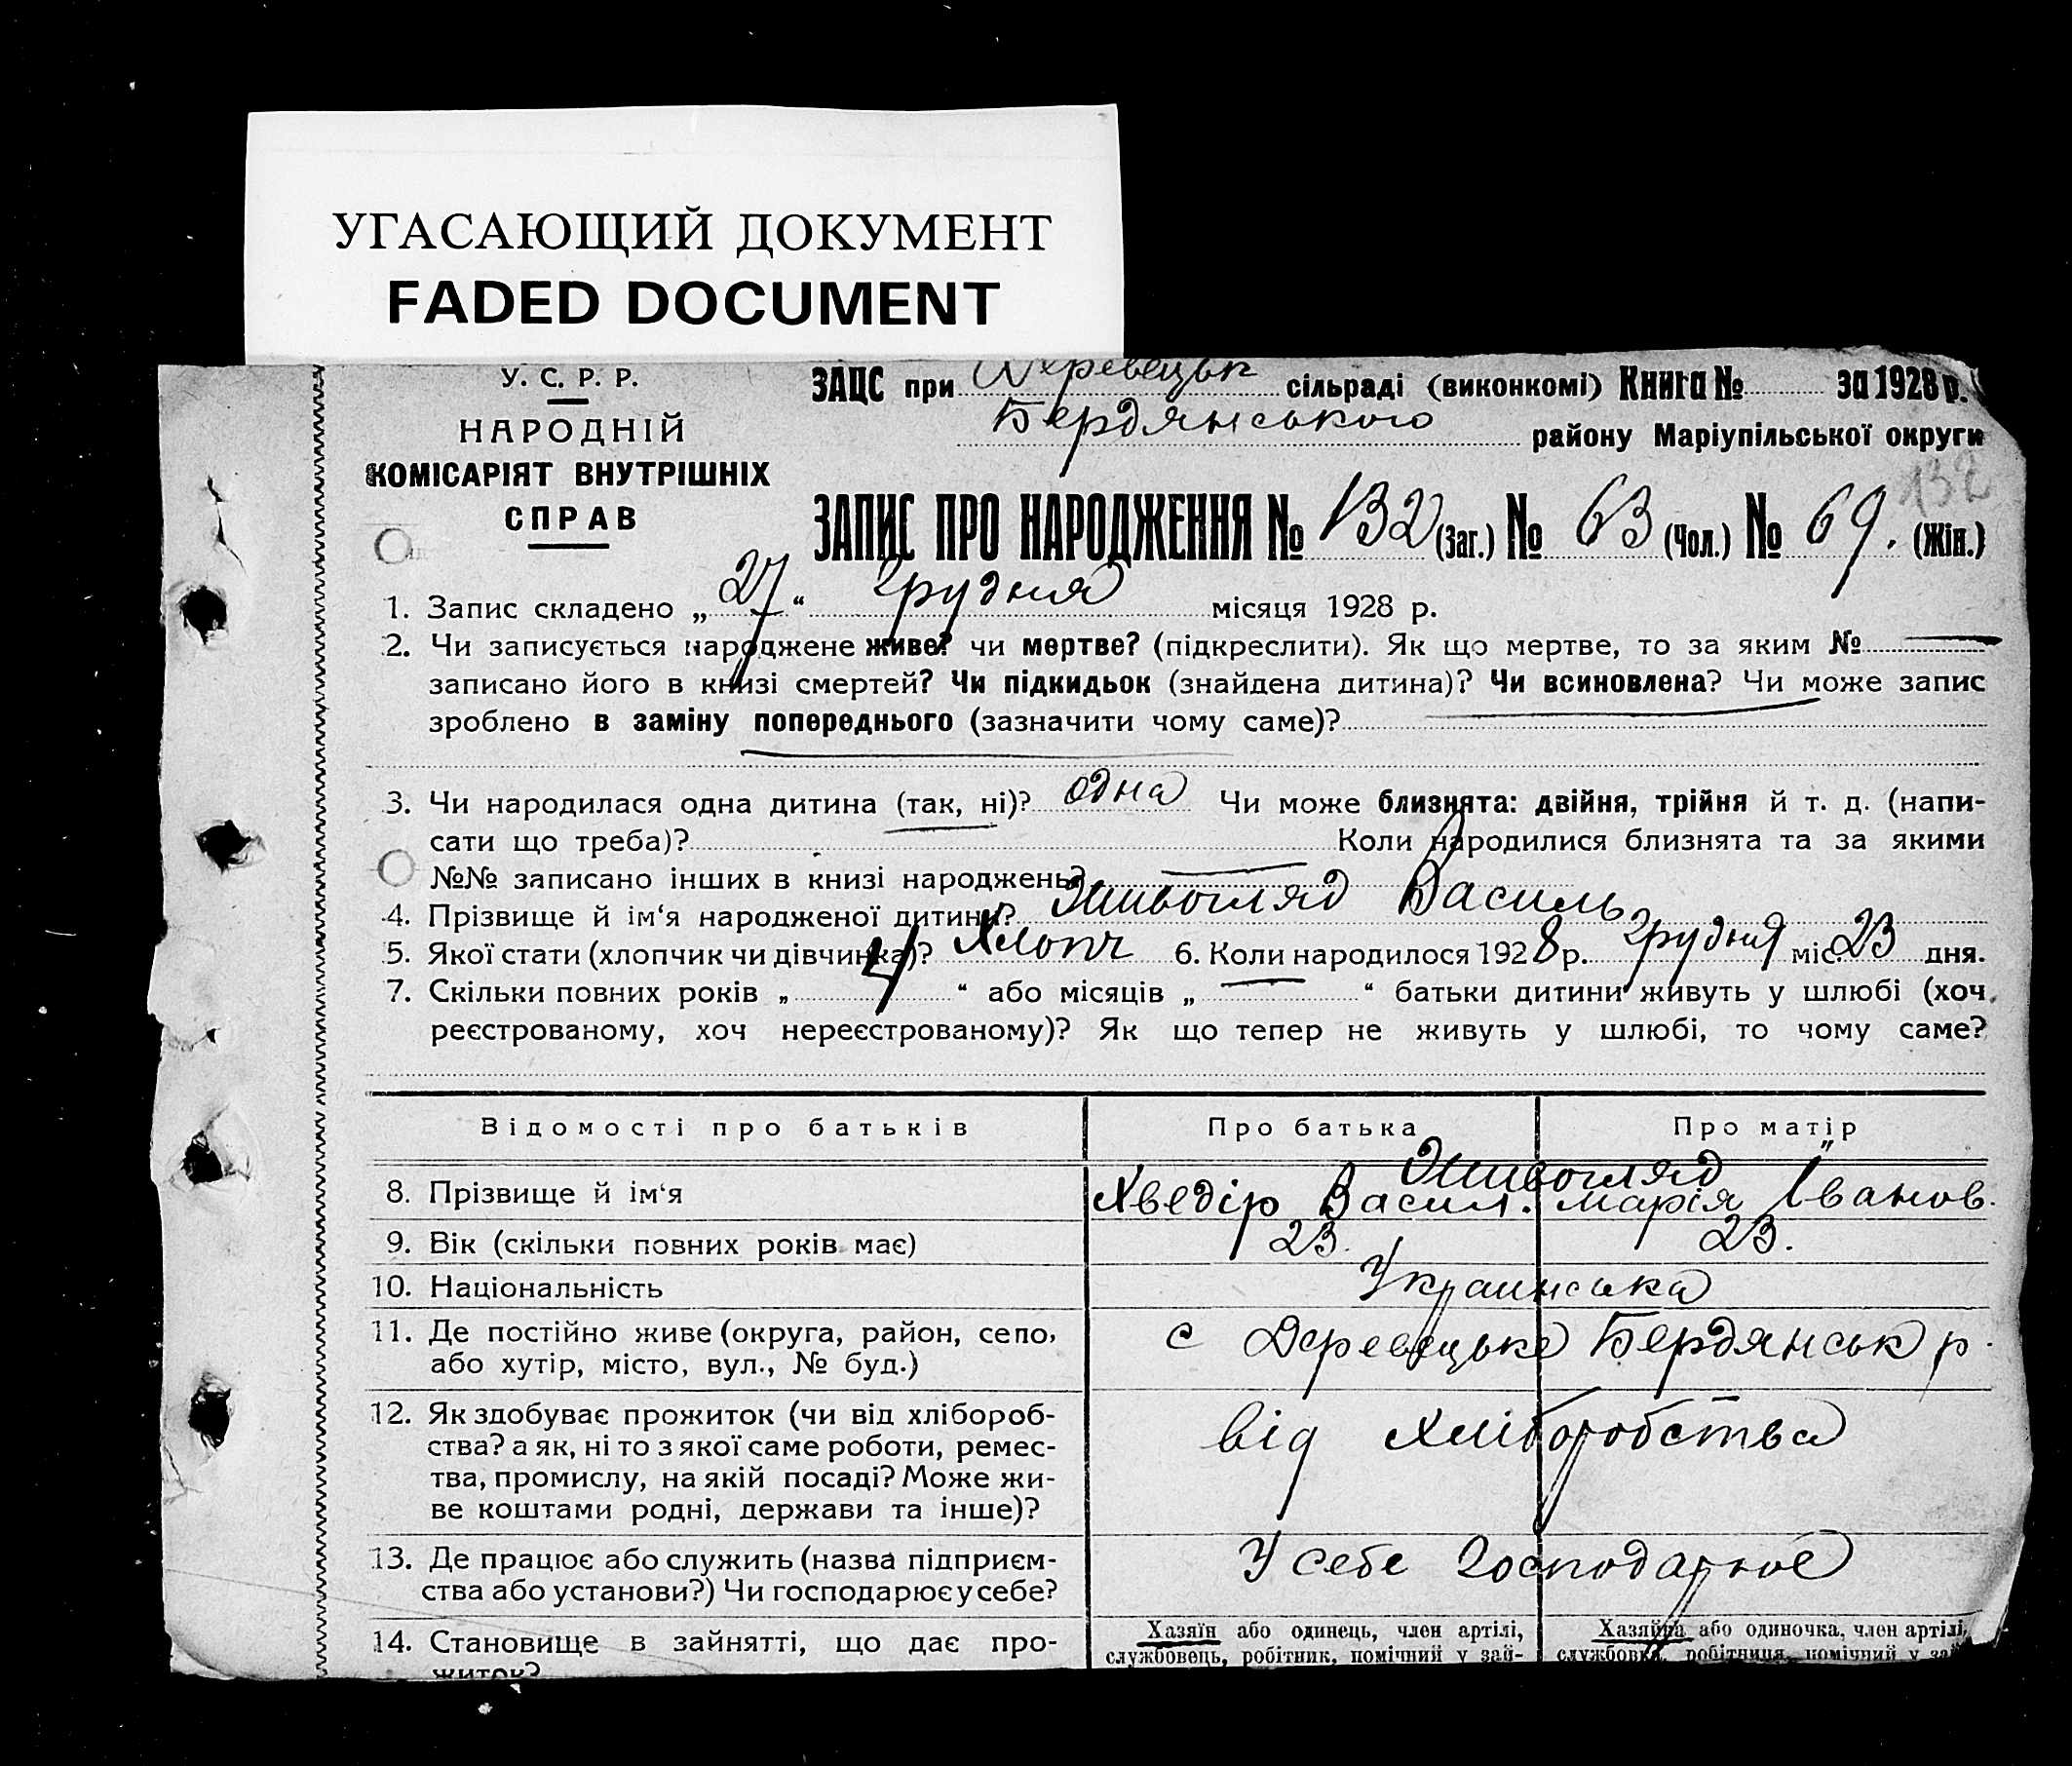 УГАСАЮЩИЙ ДОКУМЕНТ
FADED DOCUMENT
У. С. Р. Р.
НАРОДНІЙ
КОМІСАРІЯТ ВНУТРІШНІХ
СПРАВ
ЗАЦС при Деревецьк сільраді (виконкомі) Книга № за 1928 р.
Бердянського району Маріупільської округи
132
ЗАПИС ПРО НАРОДЖЕННЯ № 132 (Заг.) № 63 (Чол.) № 69. (Жін.)
1. Запис складено „27“ грудня місяця 1928 р.
2. Чи записується народжене живе? чи мертве? (підкреслити). Як що мертве, то за яким №
записано його в книзі смертей? Чи підкидьок (знайдена дитина)? Чи всиновлена? Чи може запис
зроблено в заміну попереднього (зазначити чому саме)?
3. Чи народилася одна дитина (так, ні)? одна Чи може близнята: двійня, трійня й т. д. (напи-
сати що треба)? Коли народилися близнята та за якими
№№ записано інших в книзі народжень?
4. Прізвище й ім‘я народженої дитини? Живогляд Василь
5. Якої стати (хлопчик чи дівчинка)? Хлопч 6. Коли народилося 1928 р. грудня міс. 23 дня.
7. Скільки повних років „ 4 “ або місяців „ — “ батьки дитини живуть у шлюбі (хоч
реєстрованому, хоч нереєстрованому)? Як що тепер не живуть у шлюбі, то чому саме?
Відомості про батьків Про батька Про матір
Живогляд
8. Прізвище й ім‘я Хведір Васил. Марія Іванов.
9. Вік (скільки повних років має) 23. 23.
10. Національність Украинська
11. Де постійно живе (округа, район, село, с Деревецьке Бердянськ р.
або хутір, місто, вул., № буд.)
12. Як здобуває прожиток (чи від хлібороб- від хліборобства
ства? а як, ні то з якої саме роботи, ремес-
тва, промислу, на якій посаді? Може жи-
ве коштами родні, держави та інше)?
13. Де працює або служить (назва підприєм- У себе господарює
ства або установи?) Чи господарює у себе?
14. Становище в зайнятті, що дає про- Хазяїн або одинець, член артілі, Хазяйка або одиночка, член артілі,
житок? службовець, робітник, помічний у зай- службовка, робітниця, помічний у зай